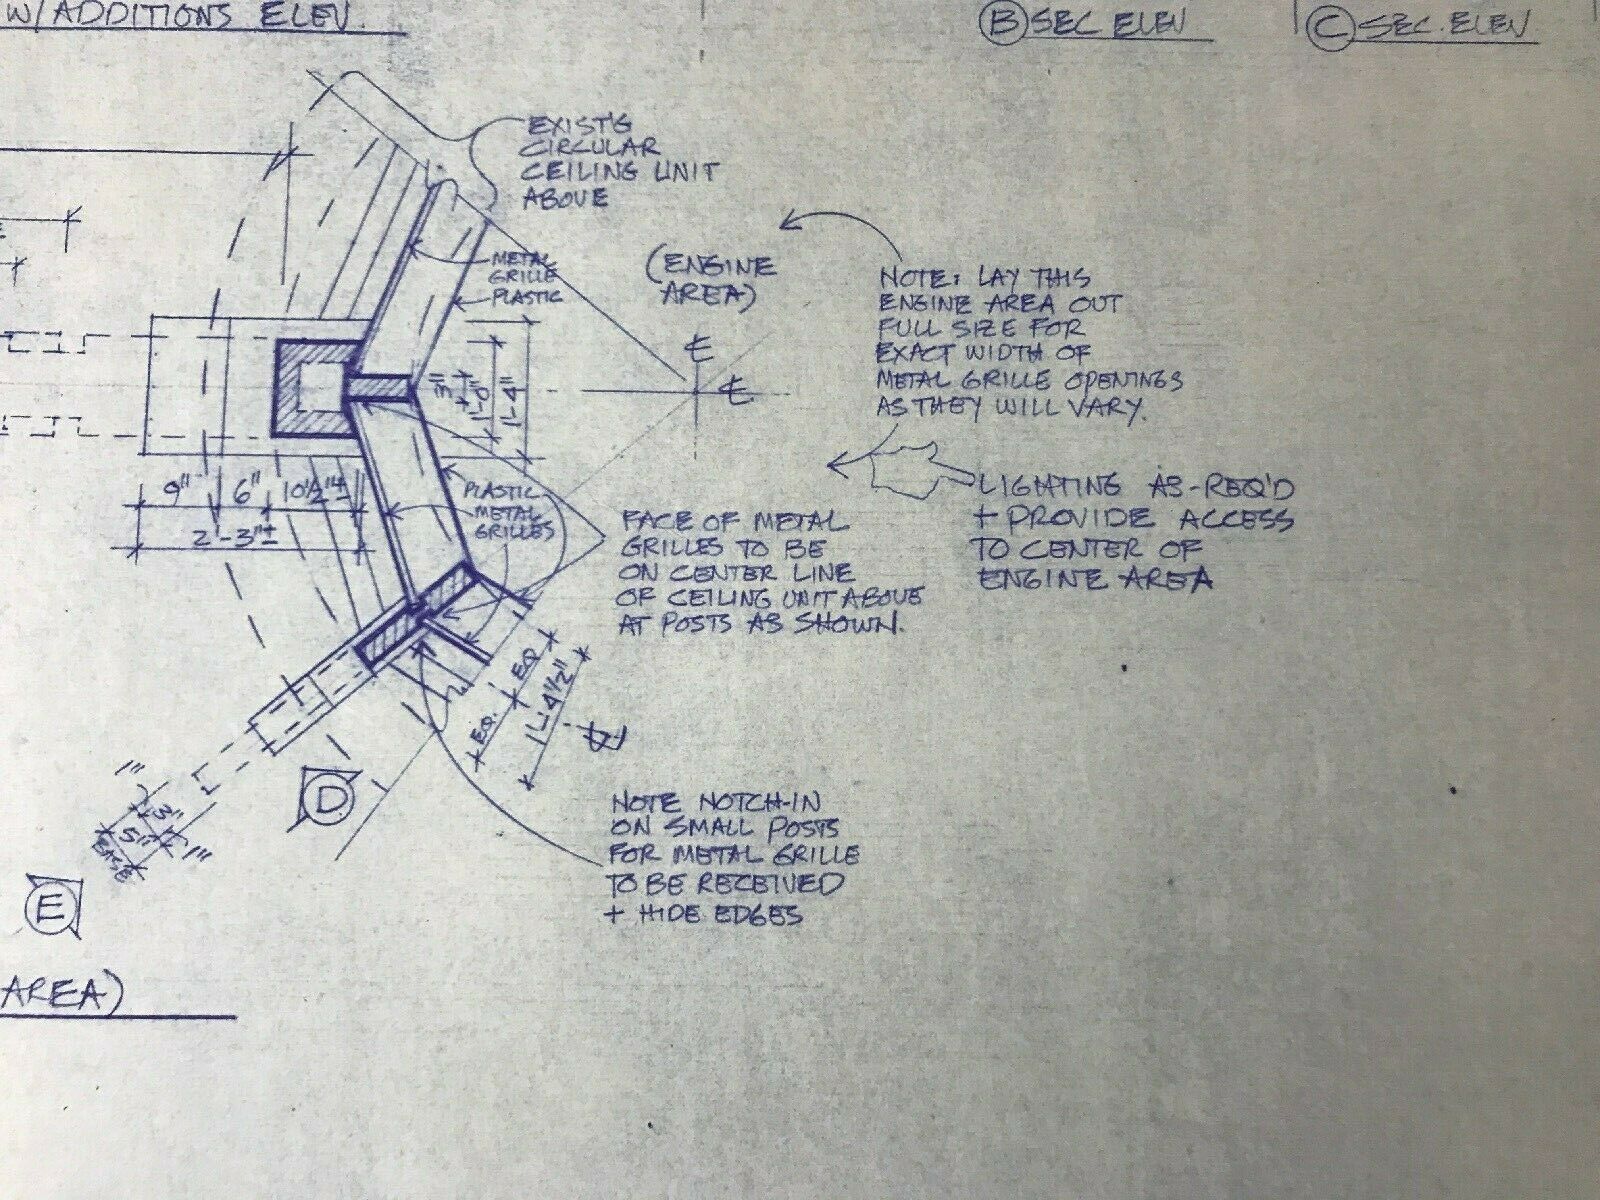 W/ADDITIONS ELEV.
B SEC ELEV
C SEC. ELEV
EXIST'G
CIRCULAR
CEILING UNIT
ABOVE
METAL
GRILLE
PLASTIC
(ENGINE
AREA)
NOTE: LAY THIS
ENGINE AREA OUT
FULL SIZE FOR
EXACT WIDTH OF
METAL GRILLE OPENINGS
AS THEY WILL VARY.
3"
1'-0"
1'-4"
9" 6" 10 1/2"
2'-3"±
PLASTIC
METAL
GRILLES
FACE OF METAL
GRILLES TO BE
ON CENTER LINE
OF CEILING UNIT ABOVE
AT POSTS AS SHOWN.
LIGHTING AS-REQ'D
+ PROVIDE ACCESS
TO CENTER OF
ENGINE AREA
EQ. EQ.
1'-4 1/2"
D
1" 3" 1"
5"
BASE
E
NOTE NOTCH-IN
ON SMALL POSTS
FOR METAL GRILLE
TO BE RECEIVED
+ HIDE EDGES
AREA)